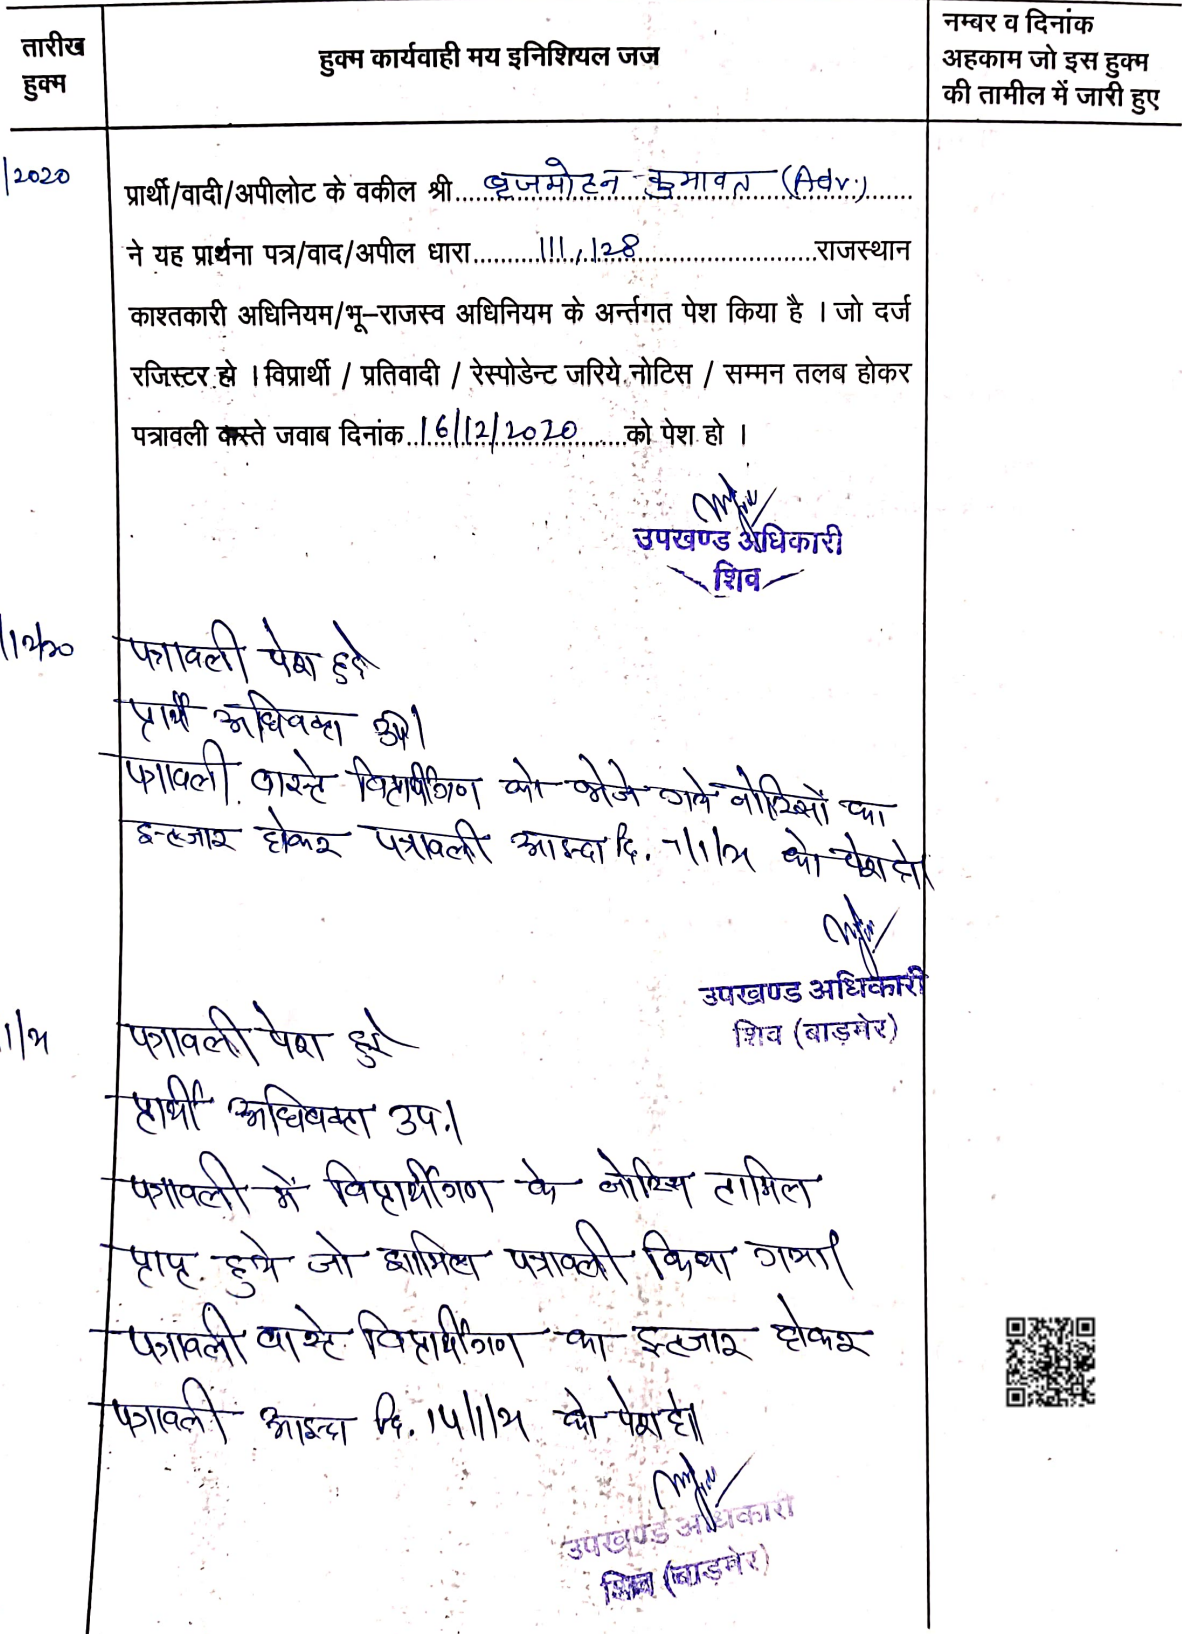 तारीख
हुक्म
हुक्म कार्यवाही मय इनिशियल जज
नम्बर व दिनांक
अहकाम जो इस हुक्म
की तामील में जारी हुए
/2020
प्रार्थी/वादी/अपीलोट के वकील श्री....बृजमोहन कुमावत (Adv.)....
ने यह प्रार्थना पत्र/वाद/अपील धारा....111,128....राजस्थान
काश्तकारी अधिनियम/भू–राजस्व अधिनियम के अर्न्तगत पेश किया है । जो दर्ज
रजिस्टर हो । विप्रार्थी / प्रतिवादी / रेस्पोडेन्ट जरिये नोटिस / सम्मन तलब होकर
पत्रावली वास्ते जवाब दिनांक..16/12/2020....को पेश हो ।
उपखण्ड अधिकारी
शिव
/12/20
पत्रावली पेश हुई
प्रार्थी अधिवक्ता उप।
पत्रावली वास्ते विप्रार्थीगण को भेजे गये नोटिसों का
इन्तजार होकर पत्रावली आइन्दा दि. 7/1/21 को पेश हो।
उपखण्ड अधिकारी
शिव (बाड़मेर)
1/21
पत्रावली पेश हुई
प्रार्थी अधिवक्ता उप.।
पत्रावली में विप्रार्थीगण के नोटिस तामिल
प्राप्त हुये जो शामिल पत्रावली किया गया।
पत्रावली वास्ते विप्रार्थीगण का इन्तजार होकर
पत्रावली आइन्दा दि. 14/1/21 को पेश हो।
उपखण्ड अधिकारी
शिव (बाड़मेर)